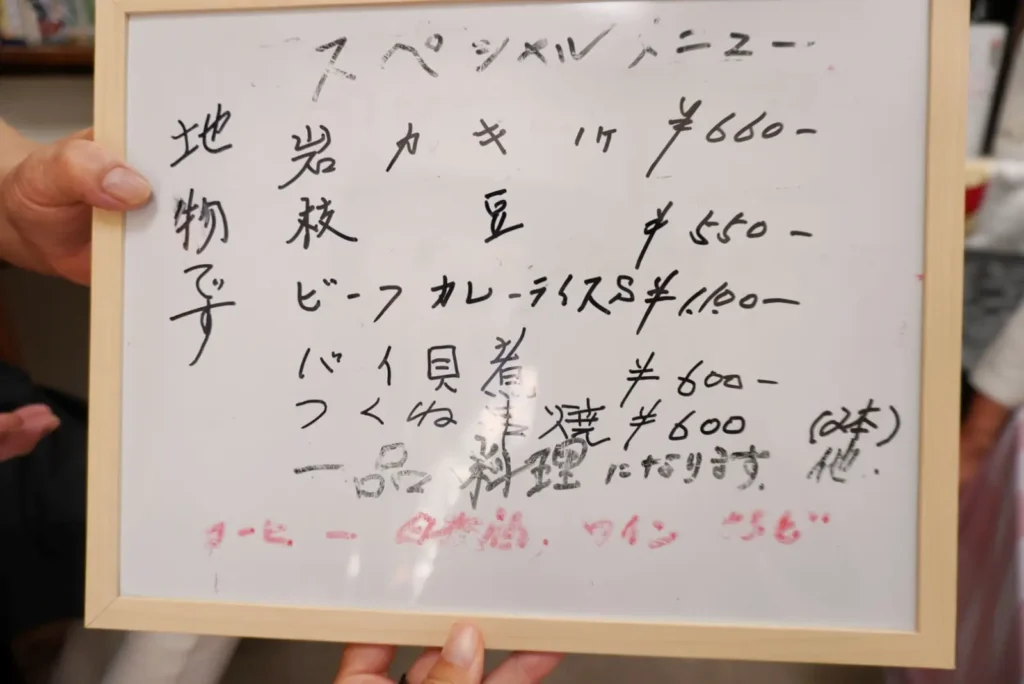 スペシャルメニュー
地物です
岩カキ 1ヶ ¥660-
枝豆 ¥550-
ビーフカレーライスS ¥1,100-
バイ貝煮 ¥600-
つくね串焼 ¥600 (2本)
一品料理になります。他.
コーヒー 日本酒. ワイン